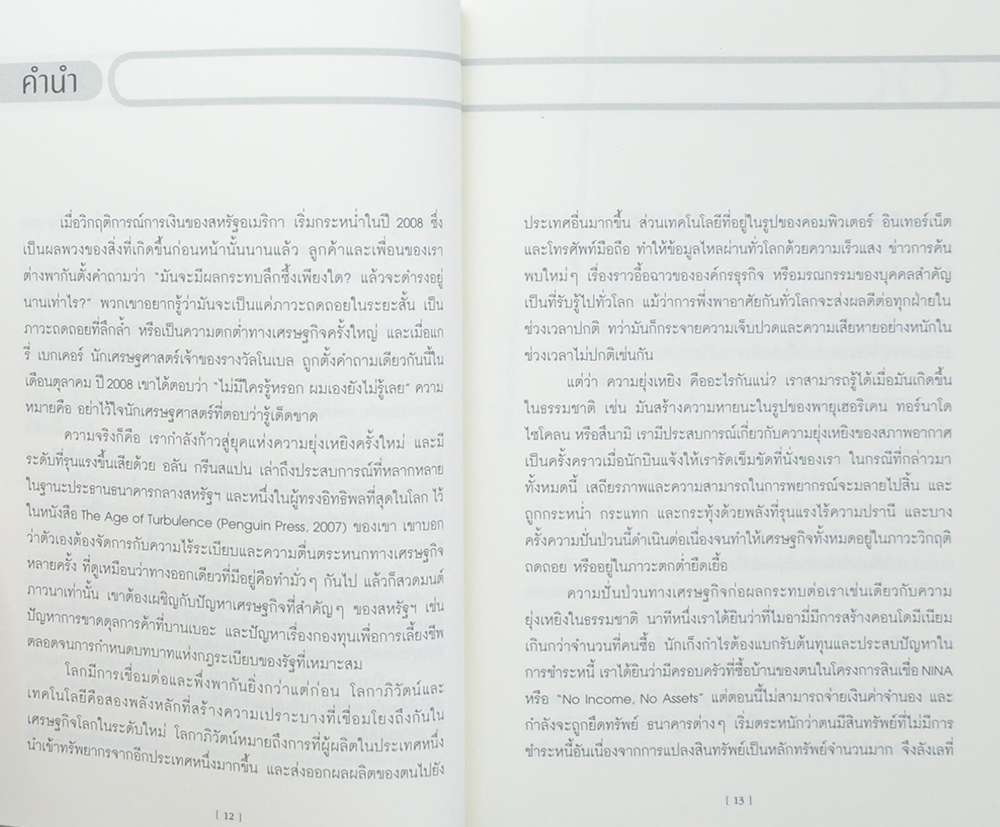 คำนำ
เมื่อวิกฤติการณ์การเงินของสหรัฐอเมริกา เริ่มกระหน่ำในปี 2008 ซึ่ง
เป็นผลพวงของสิ่งที่เกิดขึ้นก่อนหน้านั้นนานแล้ว ลูกค้าและเพื่อนของเรา
ต่างพากันตั้งคำถามว่า "มันจะมีผลกระทบลึกซึ้งเพียงใด? แล้วจะดำรงอยู่
นานเท่าไร?" พวกเขาอยากรู้ว่ามันจะเป็นแค่ภาวะถดถอยในระยะสั้น เป็น
ภาวะถดถอยที่ลึกล้ำ หรือเป็นความตกต่ำทางเศรษฐกิจครั้งใหญ่ และเมื่อแก
รี่ เบกเคอร์ นักเศรษฐศาสตร์เจ้าของรางวัลโนเบล ถูกตั้งคำถามเดียวกันนี้ใน
เดือนตุลาคม ปี 2008 เขาได้ตอบว่า "ไม่มีใครรู้หรอก ผมเองยังไม่รู้เลย" ความ
หมายคือ อย่าไว้ใจนักเศรษฐศาสตร์ที่ตอบว่ารู้เด็ดขาด
ความจริงก็คือ เรากำลังก้าวสู่ยุคแห่งความยุ่งเหยิงครั้งใหม่ และมี
ระดับที่รุนแรงขึ้นเสียด้วย อลัน กรีนสแปน เล่าถึงประสบการณ์ที่หลากหลาย
ในฐานะประธานธนาคารกลางสหรัฐฯ และหนึ่งในผู้ทรงอิทธิพลที่สุดในโลก ไว้
ในหนังสือ The Age of Turbulence (Penguin Press, 2007) ของเขา เขาบอก
ว่าตัวเองต้องจัดการกับความไร้ระเบียบและความตื่นตระหนกทางเศรษฐกิจ
หลายครั้ง ที่ดูเหมือนว่าทางออกเดียวที่มีอยู่คือทำมั่วๆ กันไป แล้วก็สวดมนต์
ภาวนาเท่านั้น เขาต้องเผชิญกับปัญหาเศรษฐกิจที่สำคัญๆ ของสหรัฐฯ เช่น
ปัญหาการขาดดุลการค้าที่บานเบอะ และปัญหาเรื่องกองทุนเพื่อการเลี้ยงชีพ
ตลอดจนการกำหนดบทบาทแห่งกฎระเบียบของรัฐที่เหมาะสม
โลกมีการเชื่อมต่อและพึ่งพากันยิ่งกว่าแต่ก่อน โลกาภิวัตน์และ
เทคโนโลยีคือสองพลังหลักที่สร้างความเปราะบางที่เชื่อมโยงถึงกันใน
เศรษฐกิจโลกในระดับใหม่ โลกาภิวัตน์หมายถึงการที่ผู้ผลิตในประเทศหนึ่ง
นำเข้าทรัพยากรจากอีกประเทศหนึ่งมากขึ้น และส่งออกผลผลิตของตนไปยัง
[ 12 ]
ประเทศอื่นมากขึ้น ส่วนเทคโนโลยีที่อยู่ในรูปของคอมพิวเตอร์ อินเทอร์เน็ต
และโทรศัพท์มือถือ ทำให้ข้อมูลไหลผ่านทั่วโลกด้วยความเร็วแสง ข่าวการค้น
พบใหม่ๆ เรื่องราวอื้อฉาวขององค์กรธุรกิจ หรือมรณกรรมของบุคคลสำคัญ
เป็นที่รับรู้ไปทั่วโลก แม้ว่าการพึ่งพาอาศัยกันทั่วโลกจะส่งผลดีต่อทุกฝ่ายใน
ช่วงเวลาปกติ ทว่ามันก็กระจายความเจ็บปวดและความเสียหายอย่างหนักใน
ช่วงเวลาไม่ปกติเช่นกัน
แต่ว่า ความยุ่งเหยิง คืออะไรกันแน่? เราสามารถรู้ได้เมื่อมันเกิดขึ้น
ในธรรมชาติ เช่น มันสร้างความหายนะในรูปของพายุเฮอริเคน ทอร์นาโด
ไซโคลน หรือสึนามิ เรามีประสบการณ์เกี่ยวกับความยุ่งเหยิงของสภาพอากาศ
เป็นครั้งคราวเมื่อนักบินแจ้งให้เรารัดเข็มขัดที่นั่งของเรา ในกรณีที่กล่าวมา
ทั้งหมดนี้ เสถียรภาพและความสามารถในการพยากรณ์จะมลายไปสิ้น และ
ถูกกระหน่ำ กระแทก และกระทุ้งด้วยพลังที่รุนแรงไร้ความปรานี และบาง
ครั้งความปั่นป่วนนี้ดำเนินต่อเนื่องจนทำให้เศรษฐกิจทั้งหมดอยู่ในภาวะวิกฤติ
ถดถอย หรืออยู่ในภาวะตกต่ำยืดเยื้อ
ความปั่นป่วนทางเศรษฐกิจก่อผลกระทบต่อเราเช่นเดียวกับความ
ยุ่งเหยิงในธรรมชาติ นาทีหนึ่งเราได้ยินว่าที่ไมอามี่มีการสร้างคอนโดมิเนียม
เกินกว่าจำนวนที่คนซื้อ นักเก็งกำไรต้องแบกรับต้นทุนและประสบปัญหาใน
การชำระหนี้ เราได้ยินว่ามีครอบครัวที่ซื้อบ้านของตนในโครงการสินเชื่อ NINA
หรือ "No Income, No Assets" แต่ตอนนี้ไม่สามารถจ่ายเงินค่าจำนอง และ
กำลังจะถูกยึดทรัพย์ ธนาคารต่างๆ เริ่มตระหนักว่าตนมีสินทรัพย์ที่ไม่มีการ
ชำระหนี้อันเนื่องจากการแปลงสินทรัพย์เป็นหลักทรัพย์จำนวนมาก จึงลังเลที่
[ 13 ]